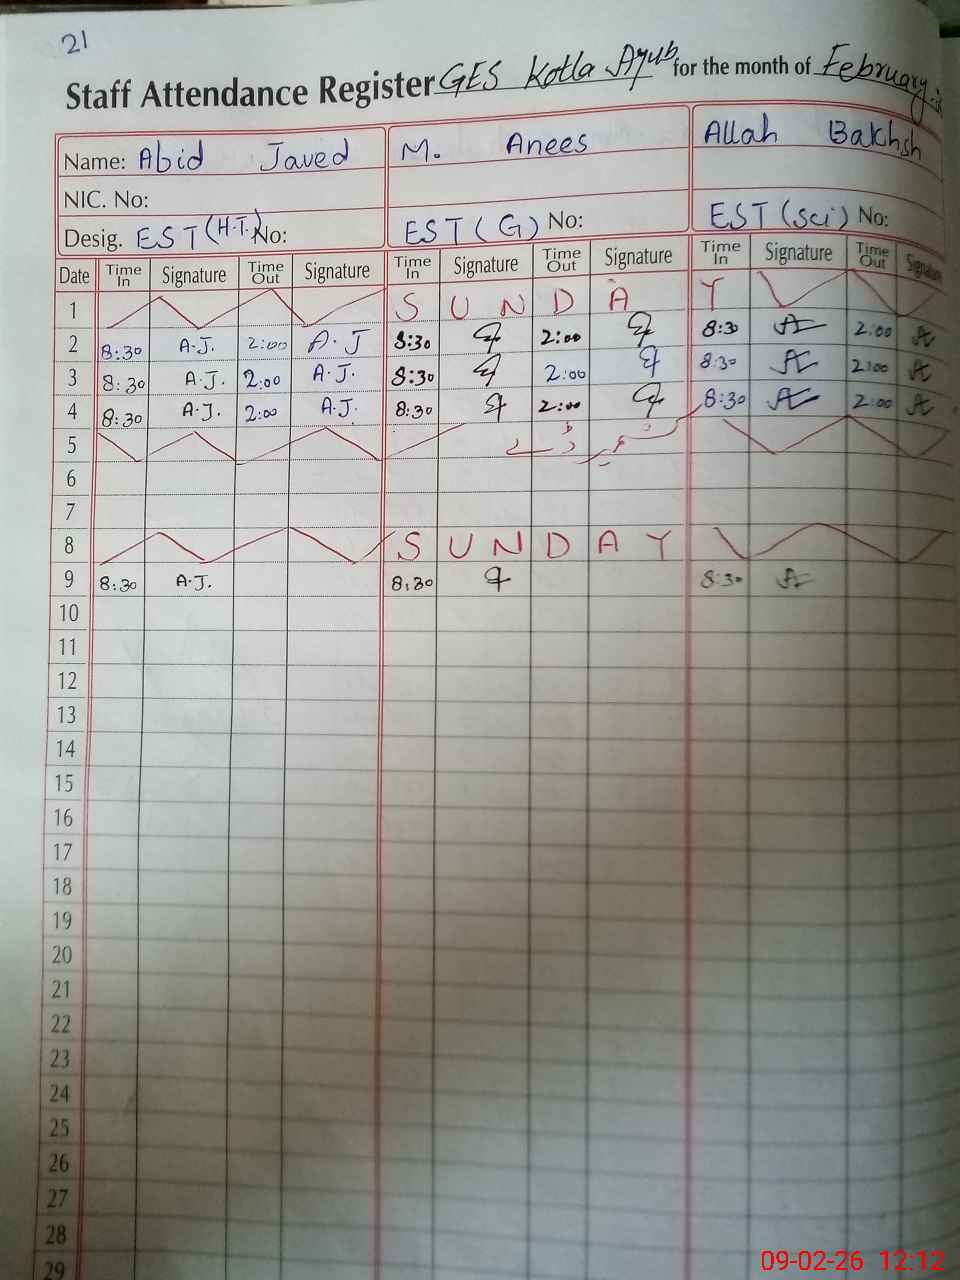 21
Staff Attendance Register GES Kotla Ayub for the month of February
Name: Abid Javed M. Anees Allah Bakhsh
NIC. No:
Desig. EST (H.T.) No: EST (G) No: EST (Sci) No:
Date Time In Signature Time Out Signature Time In Signature Time Out Signature Time In Signature Time Out Signature
1 S U N D A Y
2 8:30 A.J. 2:00 A.J 8:30 2:00 8:30 2:00
3 8:30 A.J. 2:00 A.J. 8:30 2:00 8:30 2:00
4 8:30 A.J. 2:00 A.J. 8:30 2:00 8:30 2:00
5
6
7
8 S U N D A Y
9 8:30 A.J. 8:30 8:30
10
11
12
13
14
15
16
17
18
19
20
21
22
23
24
25
26
27
28
29
09-02-26 12:12